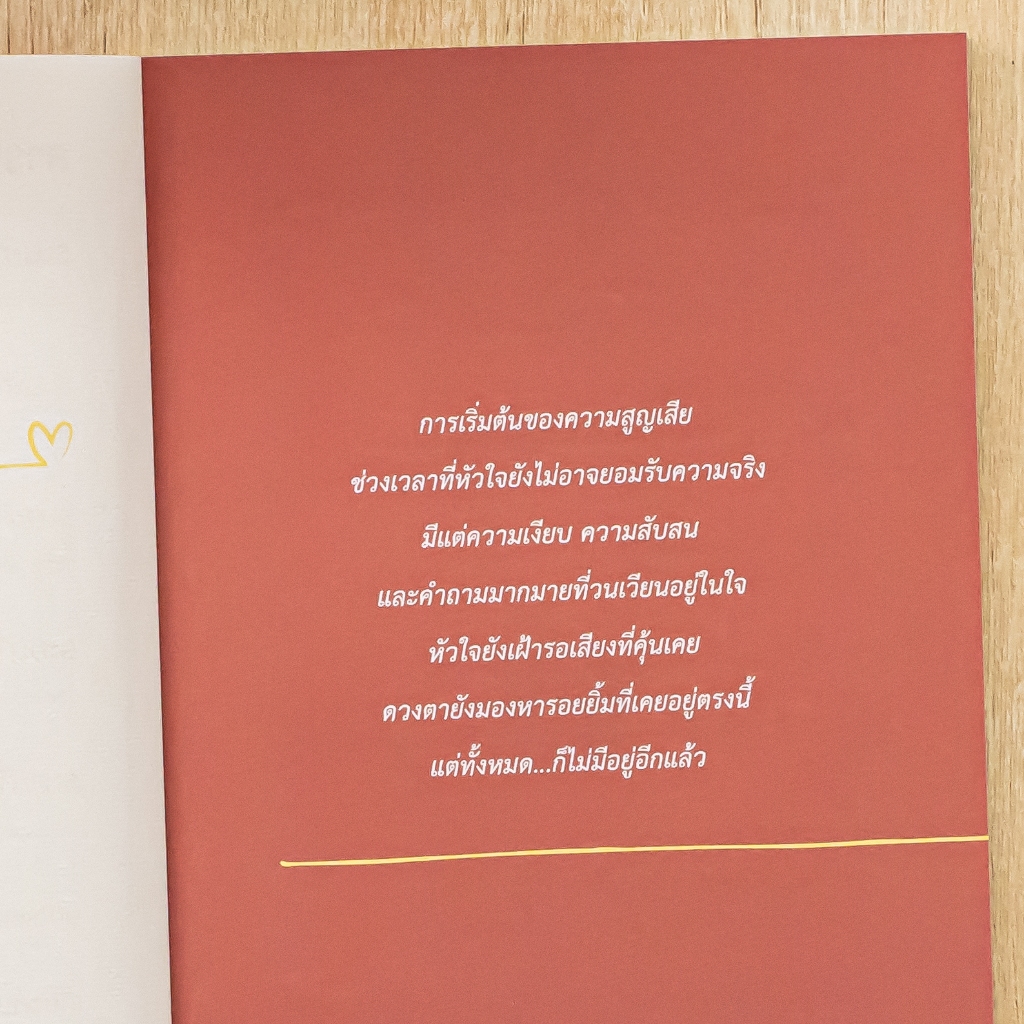 การเริ่มต้นของความสูญเสีย
ช่วงเวลาที่หัวใจยังไม่อาจยอมรับความจริง
มีแต่ความเงียบ ความสับสน
และคำถามมากมายที่วนเวียนอยู่ในใจ
หัวใจยังเฝ้ารอเสียงที่คุ้นเคย
ดวงตายังมองหารอยยิ้มที่เคยอยู่ตรงนี้
แต่ทั้งหมด...ก็ไม่มีอยู่อีกแล้ว